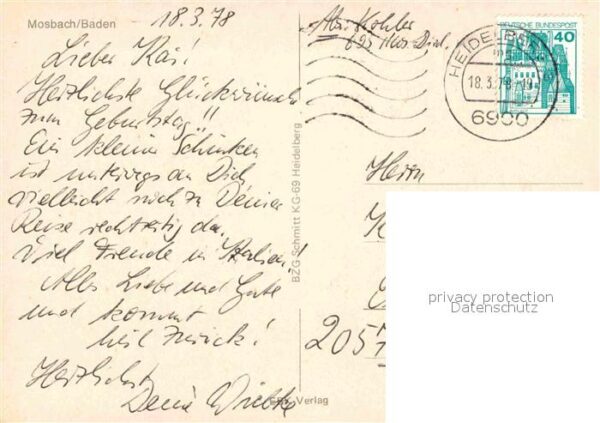 Mosbach/Baden
18.3.78
Lieber Kai!
Herzlichste Glückwünsche
zum Geburtstag!!
Ein kleiner Schinken
ist unterwegs an Dich
vielleicht noch zu Deiner
Reise rechtzeitig da.
Viel Freude in Italien!
Alles Liebe und Gute
und kommt
heil zurück!
Herzlichst
Deine Wiebke
BZG Schmitt KG·69 Heidelberg
Verlag
Abs. Kohler
695
DEUTSCHE BUNDESPOST
40
HEIDELBERG
18.3.78-19
6900
Herrn
2057
privacy protection
Datenschutz